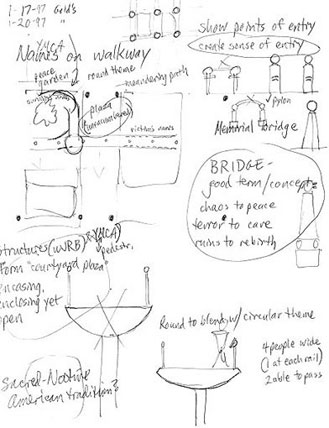 1-17-97
1-20-97 "
YMCA
Names on walkway
peace
garden
round theme
meandering path
plaza
victim's names
show points of entry
create sense of entry
pylon
Memorial bridge
BRIDGE-
good term/concept
chaos to peace
terror to care
ruins to rebirth
structures (WRB) & YMCA)
form "courtyard plaza"
encasing,
enclosing yet
open
Round to blend w/ circular theme
4 people wide
(1 at each rail)
2 able to pass
Sacred-Nature
American tradition?